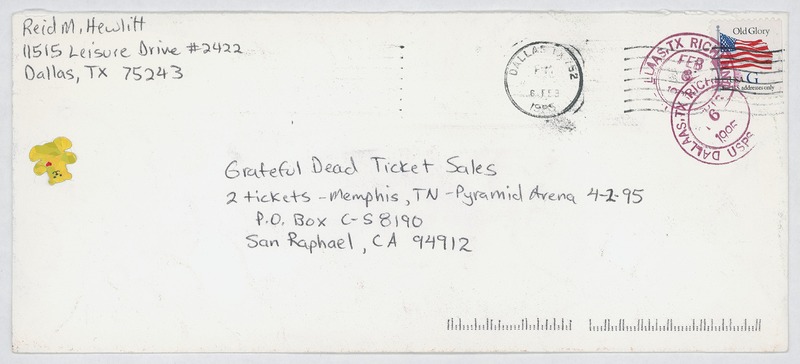 Reid M. Hewlitt
11515 Leisure Drive #2422
Dallas, TX 75243
DALLAS, TX 752
6 FEB
1995
DALLAS, TX RICH
FEB
6
DALLAS, TX RICH
6
1995
USPS
Old Glory
USA G
U.S. addresses only
Grateful Dead Ticket Sales
2 tickets - Memphis, TN - Pyramid Arena 4-2-95
P.O. Box C-S 8190
San Raphael, CA 94912